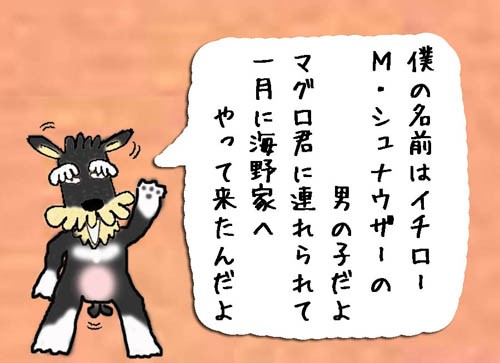 僕の名前はイチロー
M・シュナウザーの
男の子だよ
マグロ君に連れられて
一月に海野家へ
やって来たんだよ